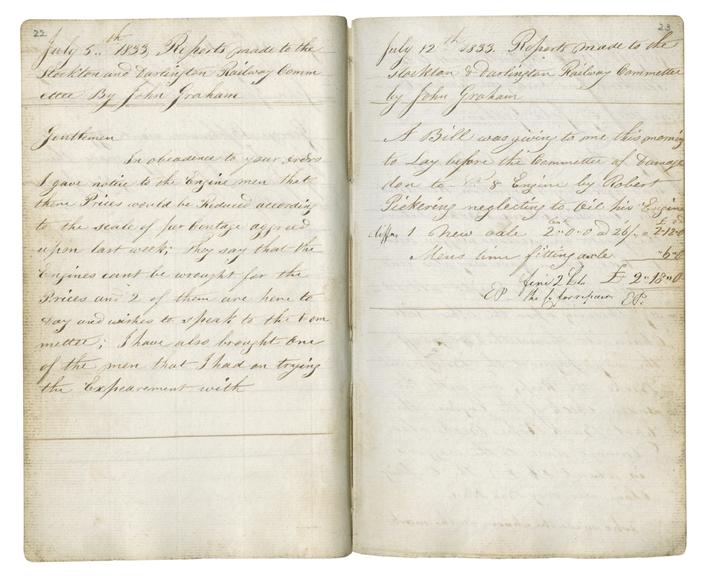 22
July 5th 1833, Reports made to the
Stockton and Darlington Railway Comm
ettee By John Graham
Gentlemen
In obeadence to your orders
I gave notice to the Engine men that
there Prices would be Reduced according
to the scale of per Centage agreed
upon last week; they say that the
Engines cant be wrought for the
Prices and 2 of them are here to
day and wishes to speak to the Com
mettee; I have also brought one
of the men that I had on trying
the Expearement with
23
July 12th 1833. Reports made to the
Stockton & Darlington Railway Committee
by John Graham
A Bill was giving to me this morning
to Lay before the Committee of Damage
don to No 8 Engine by Robert
Pickering neglecting to Oil his Engine
1 New axle 2"0"0 ad 26/ 2"12"0
Mens time fitting axle "6"0
fine 2 £ 2"18"0
EP. the for repairs EP.